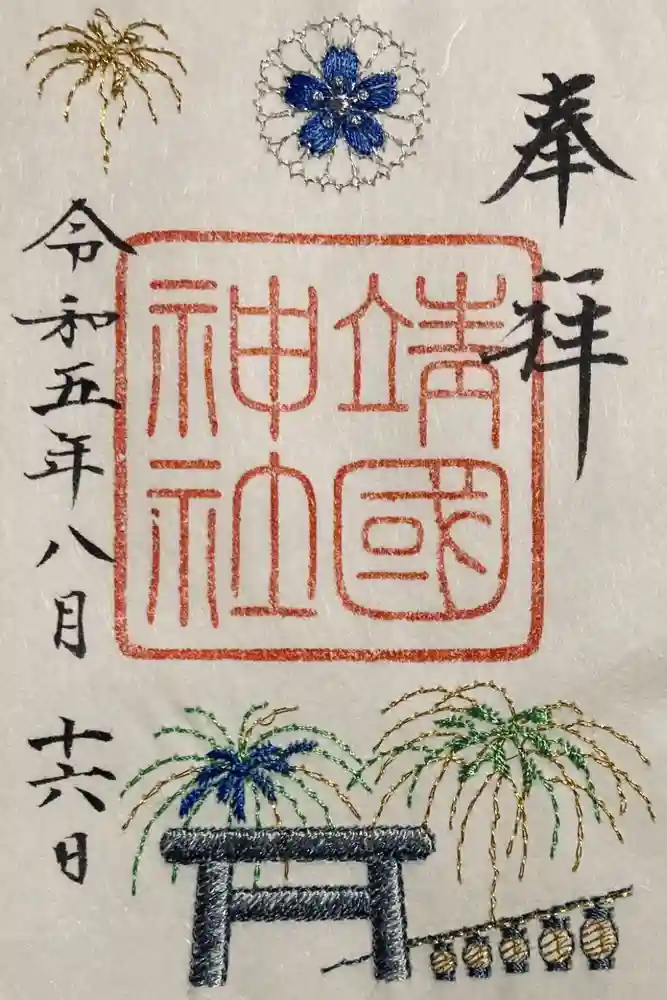 奉拝
靖國
神社
令和五年八月十六日